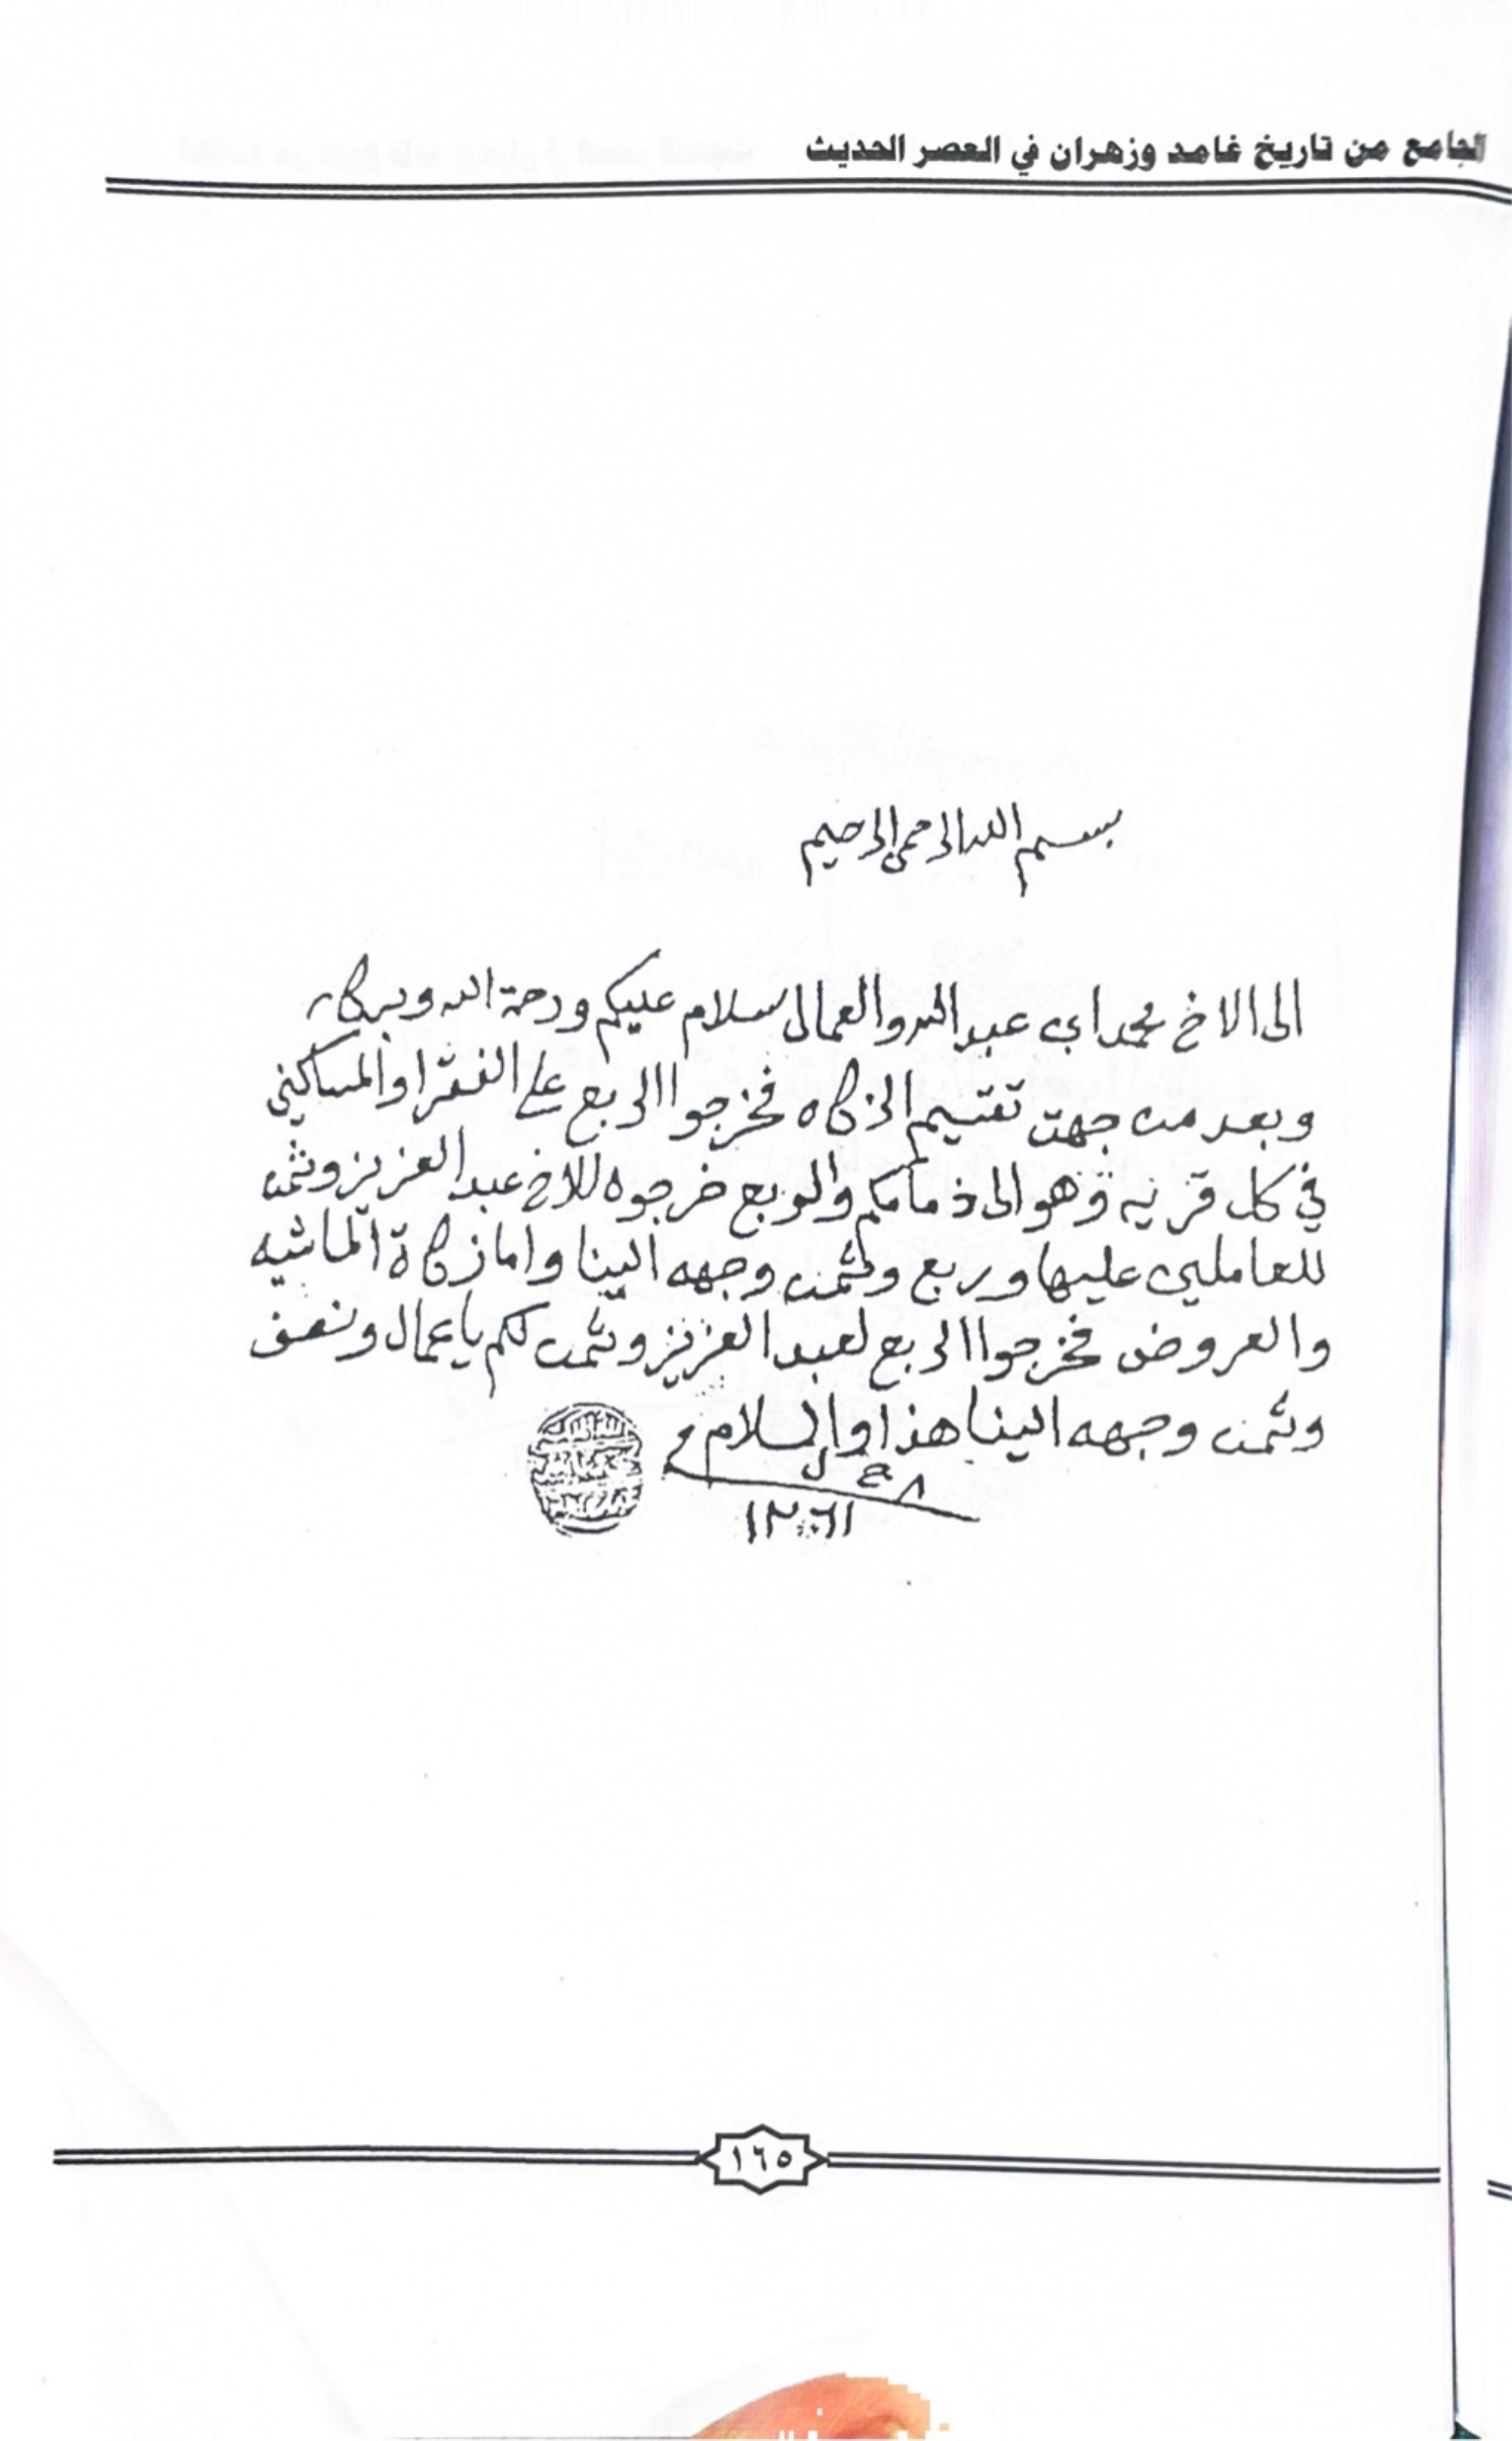 الجامع من تاريخ غامد وزهران في العصر الحديث
بسم الله الرحمن الرحيم
الى الاخ محمد ابن عبد الله والعمال سلام عليكم ورحمة الله وبركاته
وبعد من جهت تقسيم الزكاه فخرجوا الربع على الفقرا والمساكين
في كل قريه وهو الى ذمامكم والربع خرجوه للاخ عبد العزيز وثمن
للعاملين عليها وربع وثمن وجهه الينا واما زكاة الماشيه
والعروض فخرجوا الربع لعبد العزيز وثمن لكم يا عمال ونصف
وثمن وجهه الينا هذا والسلام
١٢٦١
١٦٥